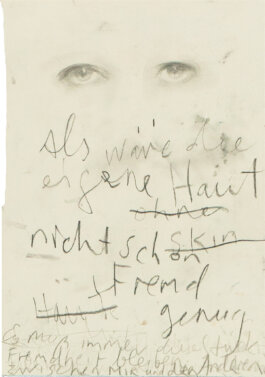 Als wäre die
eigene Haut
ohne
nicht schon
skin
Fremd
Haut
genug
Es muß immer
Fremdheit bleiben
zwischen mir und den Anderen